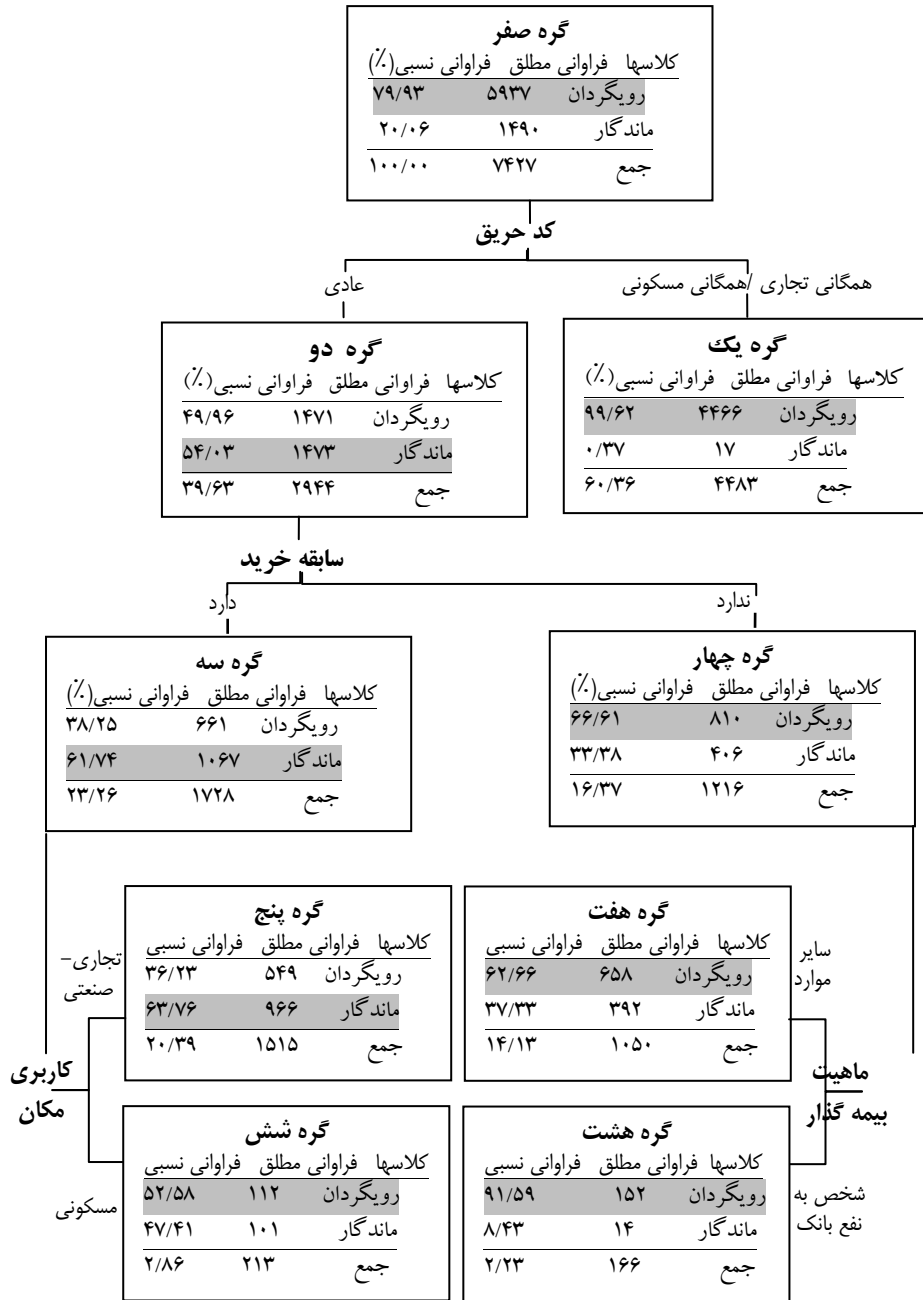 گره صفر
کلاسها فراوانی مطلق فراوانی نسبی(٪)
رویگردان ۵۹۳۷ ۷۹/۹۳
ماندگار ۱۴۹۰ ۲۰/۰۶
جمع ۷۴۲۷ ۱۰۰/۰۰
کد حریق
همگانی تجاری /همگانی مسکونی
عادی
گره یک
کلاسها فراوانی مطلق فراوانی نسبی(٪)
رویگردان ۴۴۶۶ ۹۹/۶۲
ماندگار ۱۷ ۰/۳۷
جمع ۴۴۸۳ ۶۰/۳۶
گره دو
کلاسها فراوانی مطلق فراوانی نسبی(٪)
رویگردان ۱۴۷۱ ۴۹/۹۶
ماندگار ۱۴۷۳ ۵۴/۰۳
جمع ۲۹۴۴ ۳۹/۶۳
سابقه خرید
ندارد
دارد
گره چهار
کلاسها فراوانی مطلق فراوانی نسبی(٪)
رویگردان ۸۱۰ ۶۶/۶۱
ماندگار ۴۰۶ ۳۳/۳۸
جمع ۱۲۱۶ ۱۶/۳۷
گره سه
کلاسها فراوانی مطلق فراوانی نسبی(٪)
رویگردان ۶۶۱ ۳۸/۲۵
ماندگار ۱۰۶۷ ۶۱/۷۴
جمع ۱۷۲۸ ۲۳/۲۶
سایر
موارد
گره هفت
کلاسها فراوانی مطلق فراوانی نسبی
رویگردان ۶۵۸ ۶۲/۶۶
ماندگار ۳۹۲ ۳۷/۳۳
جمع ۱۰۵۰ ۱۴/۱۳
گره پنج
کلاسها فراوانی مطلق فراوانی نسبی
رویگردان ۵۴۹ ۳۶/۲۳
ماندگار ۹۶۶ ۶۳/۷۶
جمع ۱۵۱۵ ۲۰/۳۹
تجاری-
صنعتی
ماهیت
بیمه گذار
کاربری
مکان
شخص به
نفع بانک
گره هشت
کلاسها فراوانی مطلق فراوانی نسبی
رویگردان ۱۵۲ ۹۱/۵۹
ماندگار ۱۴ ۸/۴۳
جمع ۱۶۶ ۲/۲۳
گره شش
کلاسها فراوانی مطلق فراوانی نسبی
رویگردان ۱۱۲ ۵۲/۵۸
ماندگار ۱۰۱ ۴۷/۴۱
جمع ۲۱۳ ۲/۸۶
مسکونی